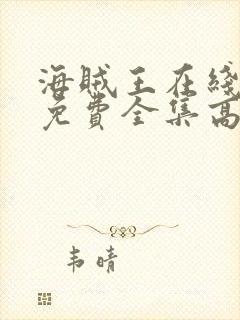 海贼王在綫
免費全集高
韦晴